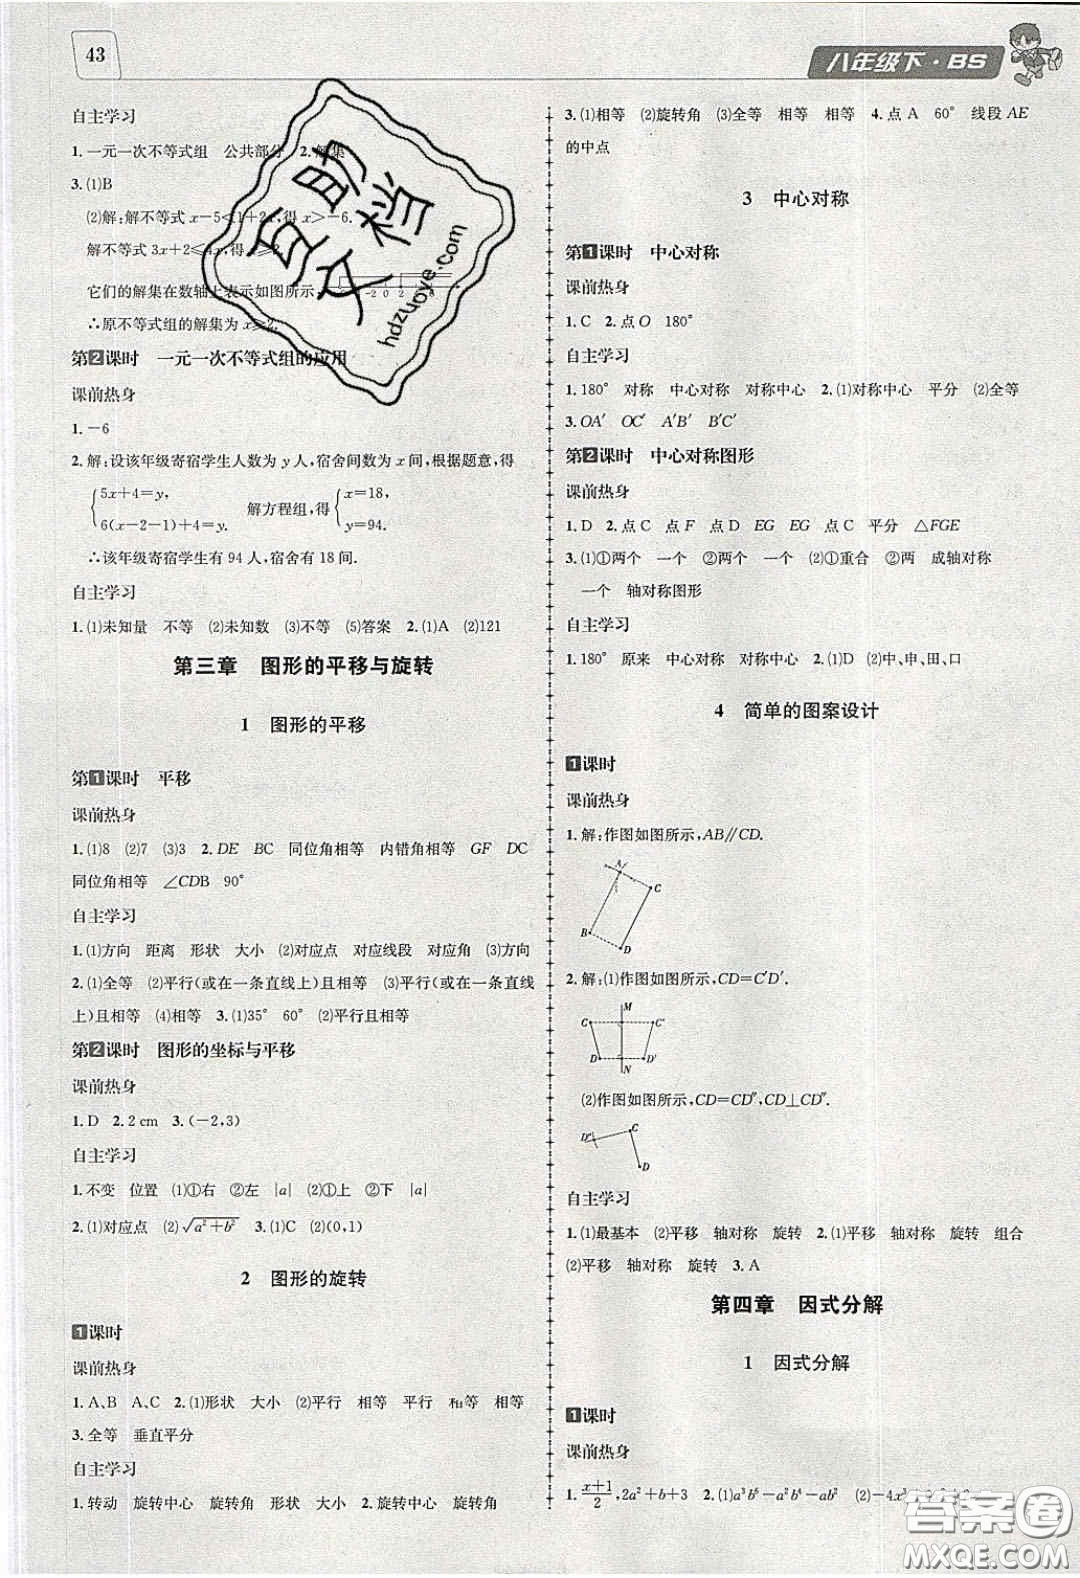 43
八年级下·BS
自主学习
1.一元一次不等式组 公共部分 2.解集
3.(1)B
(2)解:解不等式x-5<1+2x,得x>-6.
解不等式3x+2≤4x,得x≥2.
它们的解集在数轴上表示如图所示,
-2 0 2
∴原不等式组的解集为x≥2.
第2课时 一元一次不等式组的应用
课前热身
1.-6
2.解:设该年级寄宿学生人数为y人,宿舍间数为x间,根据题意,得
{5x+4=y, 6(x-2-1)+4=y. 解方程组,得{x=18, y=94.
∴该年级寄宿学生有94人,宿舍有18间.
自主学习
1.(1)未知量 不等 (2)未知数 (3)不等 (5)答案 2.(1)A (2)121
第三章 图形的平移与旋转
1 图形的平移
第1课时 平移
课前热身
1.(1)8 (2)7 (3)3 2.DE BC 同位角相等 内错角相等 GF DC
同位角相等 ∠CDB 90°
自主学习
1.(1)方向 距离 形状 大小 (2)对应点 对应线段 对应角 (3)方向
2.(1)全等 (2)平行(或在一条直线上)且相等 (3)平行(或在一条直线
上)且相等 (4)相等 3.(1)35° 60° (2)平行且相等
第2课时 图形的坐标与平移
课前热身
1.D 2.2 cm 3.(-2,3)
自主学习
1.不变 位置 (1)①右 ②左 |a| (2)①上 ②下 |a|
2.(1)对应点 (2)√(a²+b²) 3.(1)C (2)(0,1)
2 图形的旋转
1课时
课前热身
1.A、B A、C 2.(1)形状 大小 (2)平行 相等 平行 和等 相等
3.全等 垂直平分
自主学习
1.转动 旋转中心 旋转角 形状 大小 2.旋转中心 旋转角
3.(1)相等 (2)旋转角 (3)全等 相等 相等 4.点A 60° 线段AE
的中点
3 中心对称
第1课时 中心对称
课前热身
1.C 2.点O 180°
自主学习
1.180° 对称 中心对称 对称中心 2.(1)对称中心 平分 (2)全等
3.OA′ OC′ A′B′ B′C′
第2课时 中心对称图形
课前热身
1.D 2.点C 点F 点D EG EG 点C 平分 △FGE
3.(1)①两个 一个 ②两个 一个 (2)①重合 ②两 成轴对称
一个 轴对称图形
自主学习
1.180° 原来 中心对称 对称中心 2.(1)D (2)中、申、田、口
4 简单的图案设计
1课时
课前热身
1.解:作图如图所示,AB∥CD.
A
C
B
D
2.解:(1)作图如图所示,CD=C′D′.
M
C C′
D D′
N
(2)作图如图所示,CD=CD″,CD⊥CD″.
D″ C
D
自主学习
1.(1)最基本 (2)平移 轴对称 旋转 2.(1)平移 轴对称 旋转 组合
(2)平移 轴对称 旋转 3.A
第四章 因式分解
1 因式分解
1课时
课前热身
1.(x+1)/2,2a²+b+3 2.(1)a³b⁶-a²b⁴-ab² (2)-4x³
互助文档
hdzuoye.com
答案圈
MXQE.COM